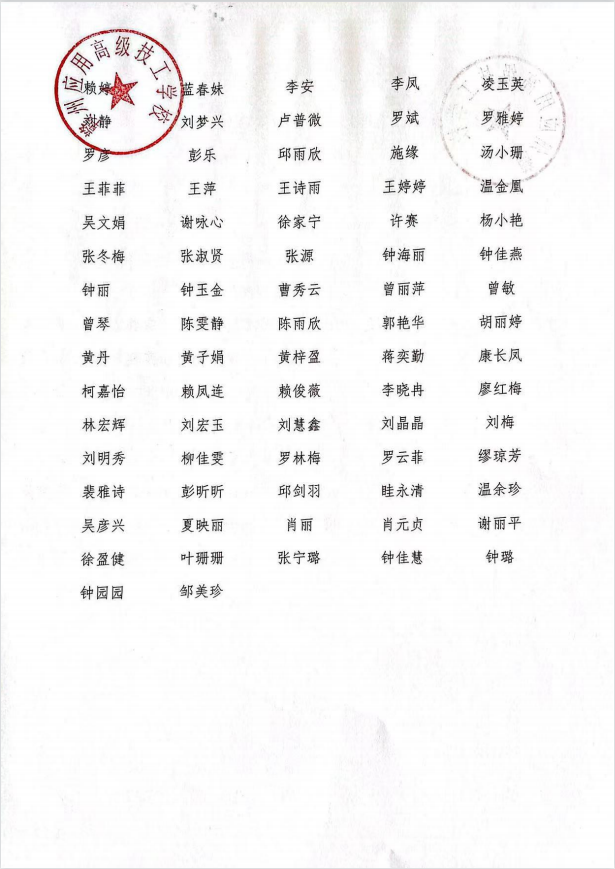 赣州应用高级技工学校
赖婷 蓝春妹 李安 李凤 凌玉英
刘静 刘梦兴 卢普微 罗斌 罗雅婷
罗彦 彭乐 邱雨欣 施缘 汤小珊
王菲菲 王萍 王诗雨 王婷婷 温金凰
吴文娟 谢咏心 徐家宁 许赛 杨小艳
张冬梅 张淑贤 张源 钟海丽 钟佳燕
钟丽 钟玉金 曹秀云 曾丽萍 曾敏
曾琴 陈雯静 陈雨欣 郭艳华 胡丽婷
黄丹 黄子娟 黄梓盈 蒋奕勤 康长凤
柯嘉怡 赖凤连 赖俊薇 李晓冉 廖红梅
林宏辉 刘宏玉 刘慧鑫 刘晶晶 刘梅
刘明秀 柳佳雯 罗林梅 罗云菲 缪琼芳
裴雅诗 彭昕昕 邱剑羽 眭永清 温余珍
吴彦兴 夏映丽 肖丽 肖元贞 谢丽平
徐盈健 叶珊珊 张宁璐 钟佳慧 钟璐
钟园园 邹美珍